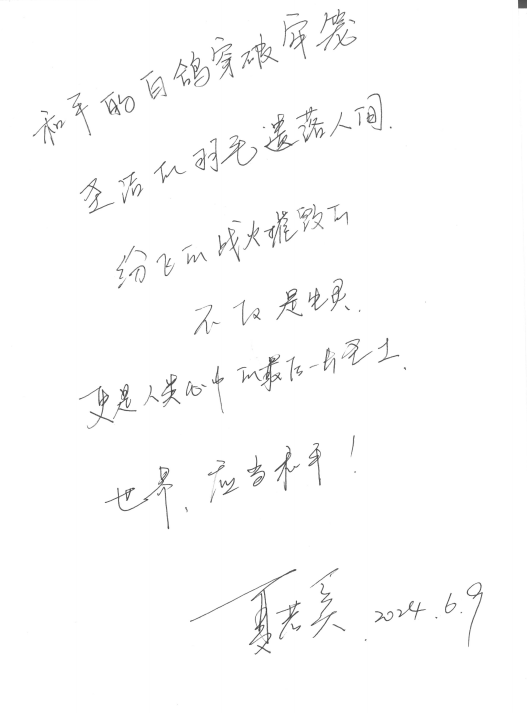 和平的白鸽穿破牢笼
圣洁的羽毛遗落人间.
纷飞的战火摧毁的
不仅是生灵.
更是人类心中的最后一片圣土.
世界、应当和平！
夏若美.2024.6.9